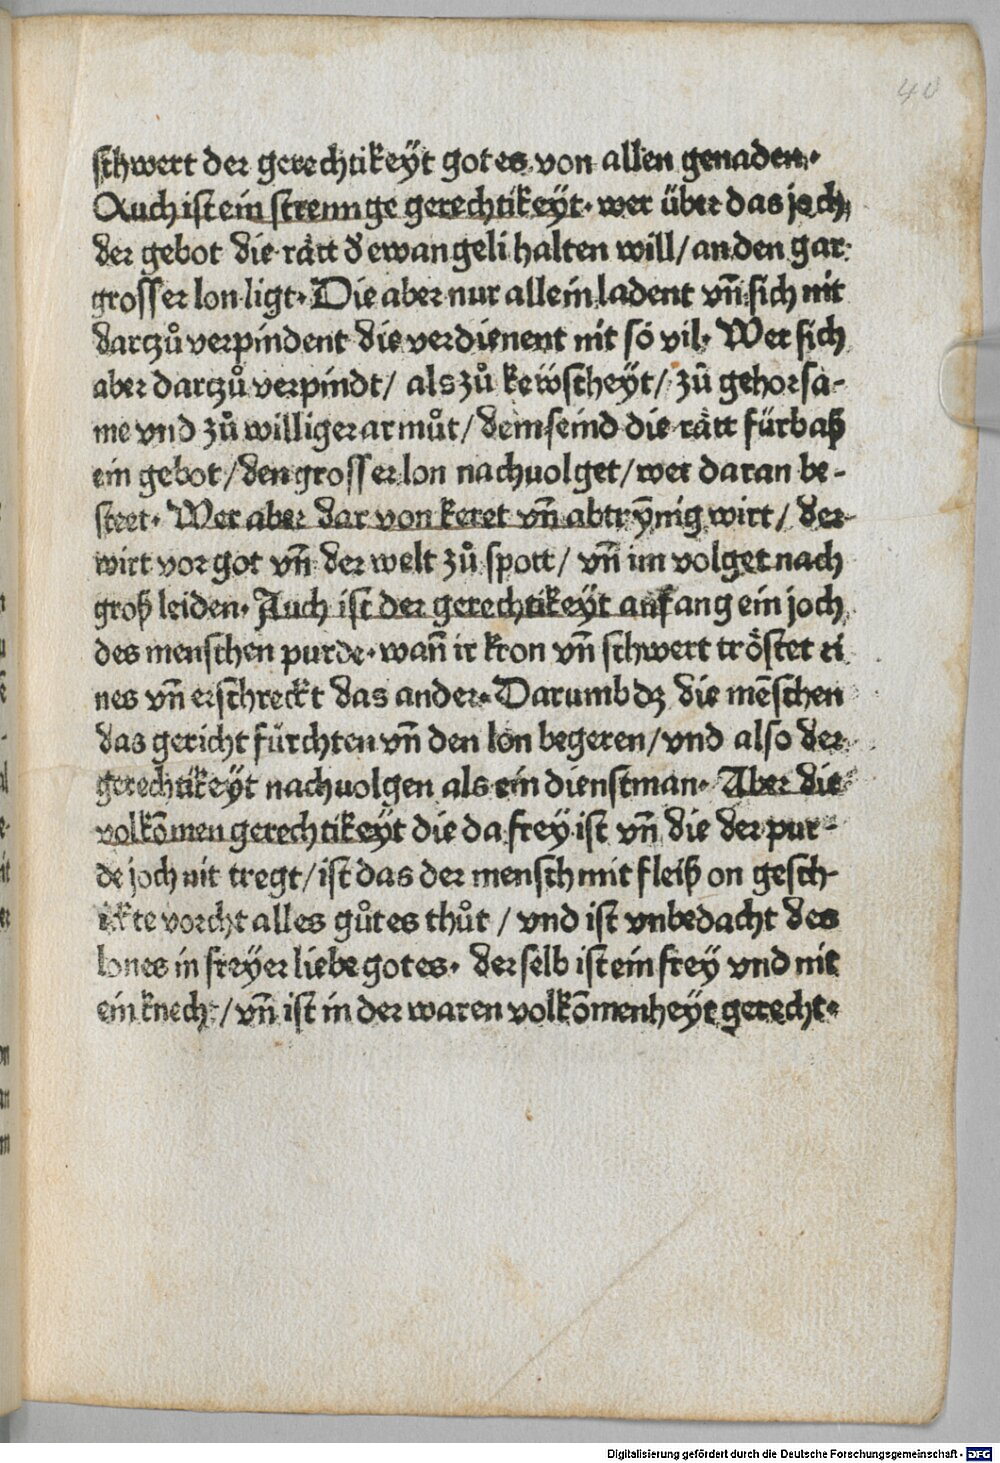 40
schwert der gerechtikeyt gotes von allen genaden·
Auch ist ein strennge gerechtikeyt· wer über das joch
der gebot die rätt d̕ ewangeli halten will/ an den gar
grosser lon ligt· Die aber nur allein ladent vn̄ sich nit
dartzů verpindent die verdienent nit so vil· Wer sich
aber dartzů verpindt/ als zů kewscheyt/ zů gehorsa-
me vnd zů williger armůt/ dem seind die rätt fürbaß
ein gebot/ den grosser lon nachuolget/ wer daran be-
steet· Wer aber dar von keret vn̄ abtrÿnig wirt/ der
wirt vor got vn̄ der welt zů spott/ vn̄ im volget nach
groß leiden· Auch ist der gerechtikeyt anfang ein joch
des menschen purde· wan̄ ir kron vn̄ schwert tröstet ei
nes vn̄ erschreckt das ander· Darumb dz die mēschen
das gericht fürchten vn̄ den lon begeren/ vnd also der
gerechtikeyt nachuolgen als ein dienstman· Aber die
volkōmen gerechtikeyt die da frey ist vn̄ die der pur-
de joch nit tregt/ ist das der mensch mit fleiß on gesch-
ikte vorcht alles gůtes thůt/ vnd ist vnbedacht des
lones in freyer liebe gotes· der selb ist ein frey vnd nit
ein knecht/ vn̄ ist in der waren volkōmenheyt gerecht·
Digitalisierung gefördert durch die Deutsche Forschungsgemeinschaft - DFG